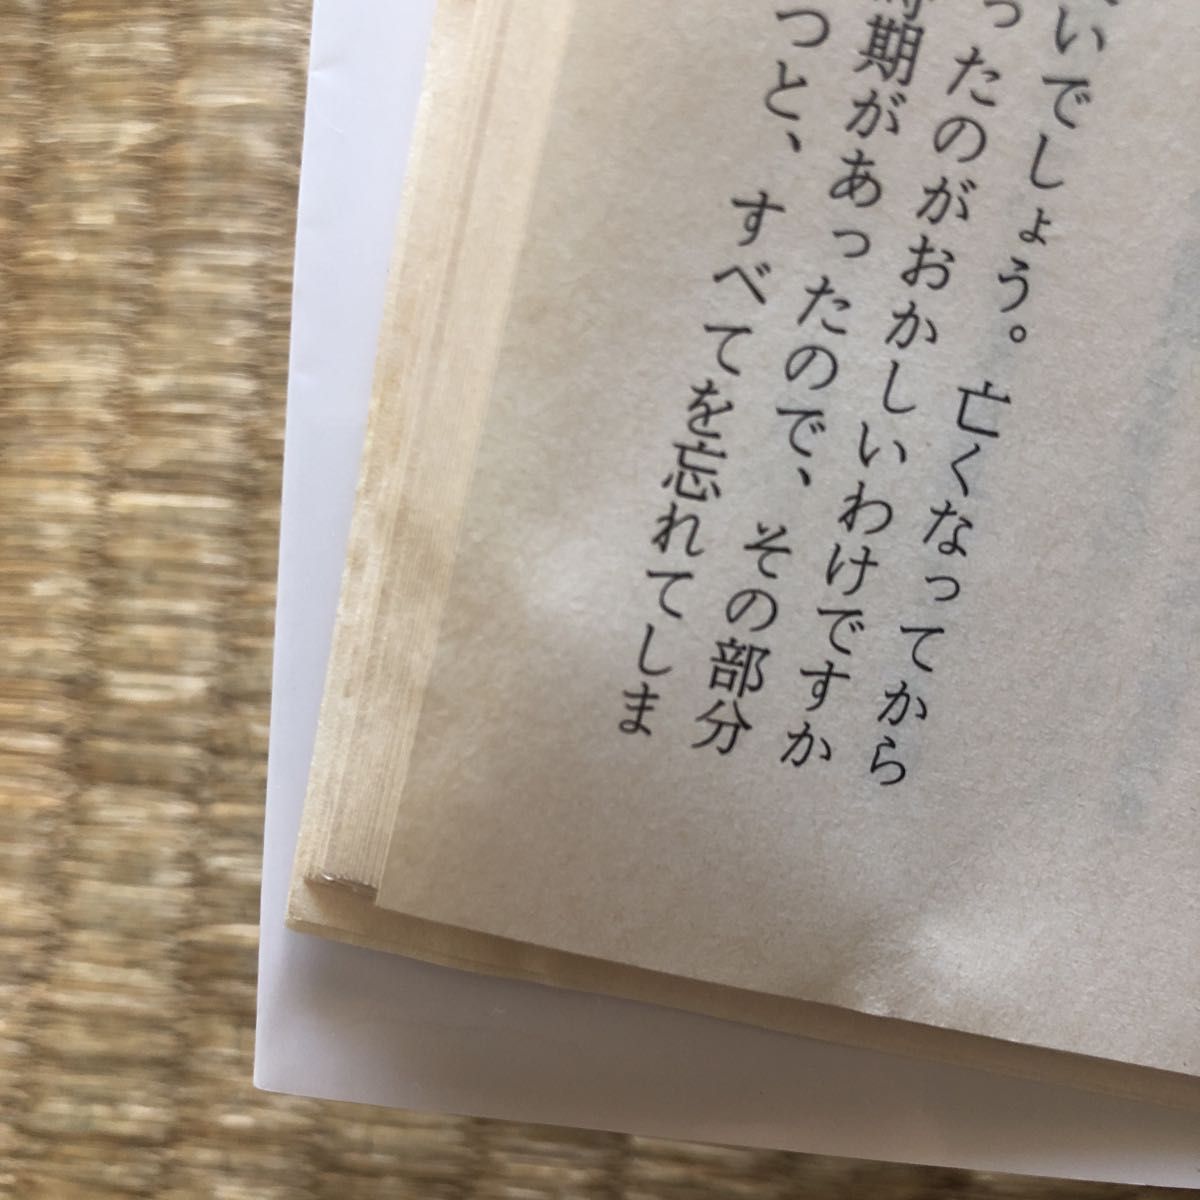 いでしょう。亡くなってから
ったのがおかしいわけですか
時期があったので、その部分
つと、すべてを忘れてしま